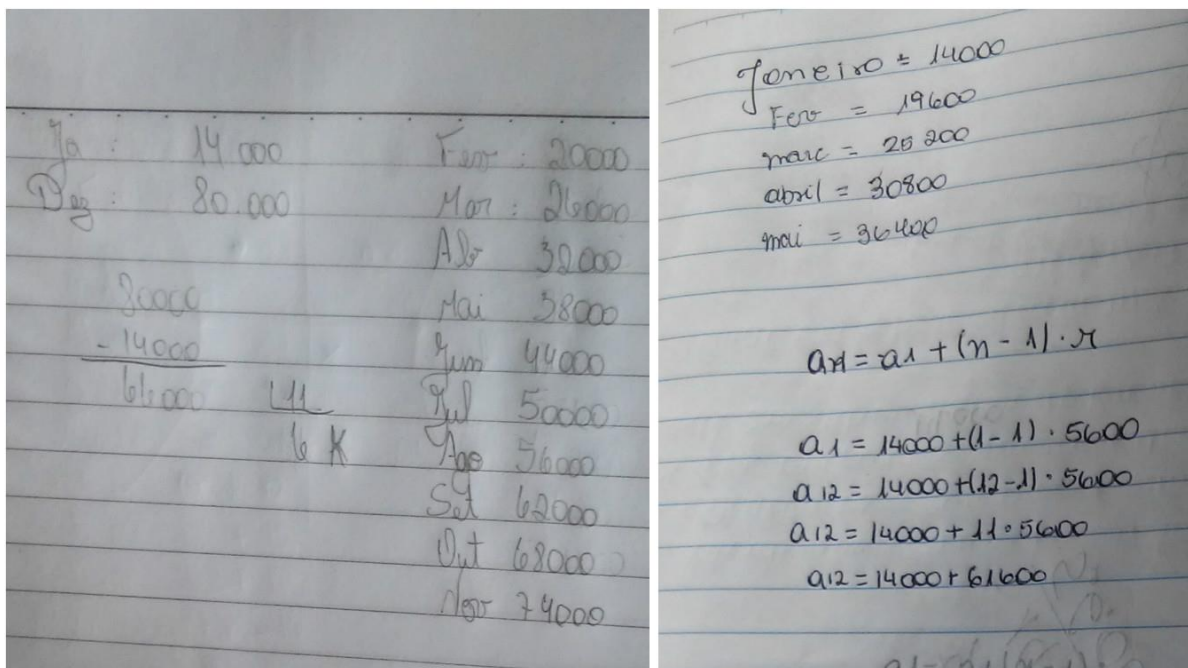 Ja : 14 000 Fev : 20000
Dez : 80.000 Mar : 26000
Abr 32000
80000 Mai 38000
- 14000 Jun 44000
66000 11 Jul 50000
6 K Ago 56000
Set 62000
Out 68000
Nov 74000
Janeiro = 14000
Fev = 19600
marc = 25 200
abril = 30800
mai = 36400
an = a1 + (n - 1) . r
a1 = 14000 + (1 - 1) . 5600
a12 = 14000 + (12 - 1) . 5600
a12 = 14000 + 11 . 5600
a12 = 14000 + 61600